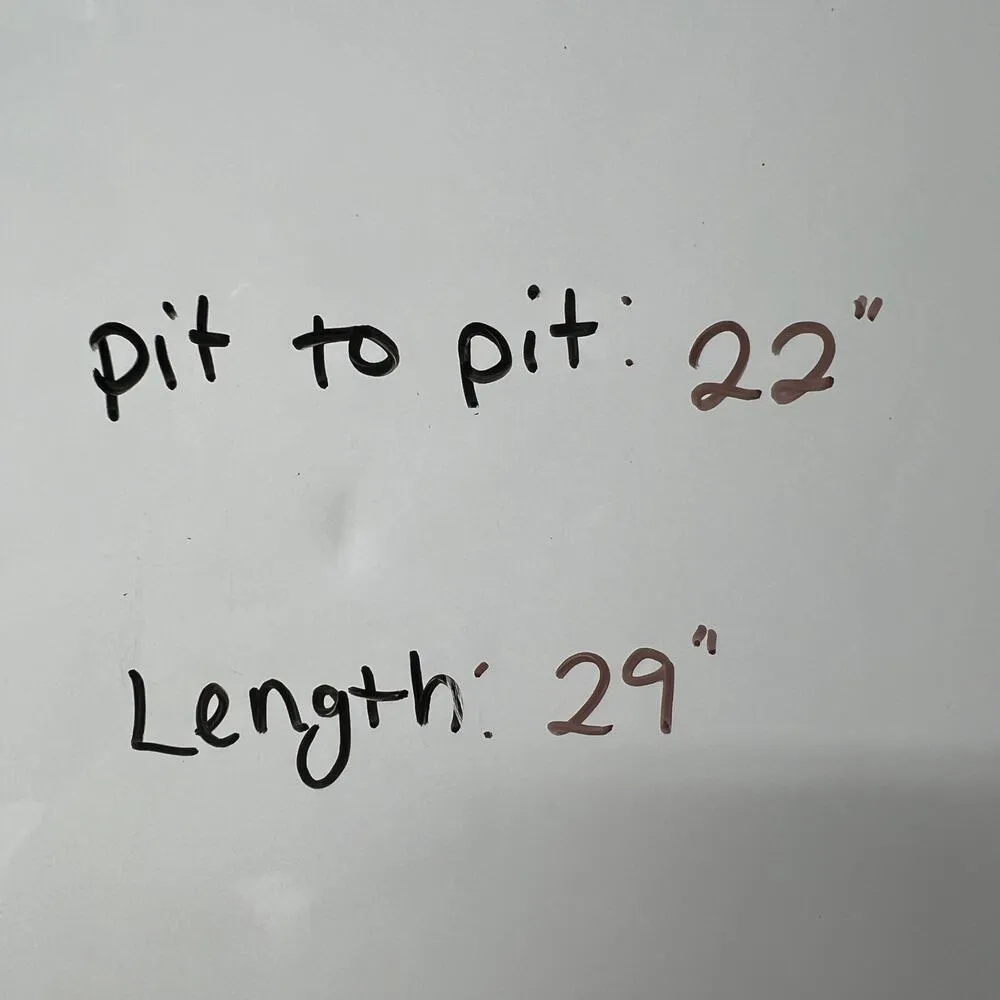 pit to pit: 22"
Length: 29"